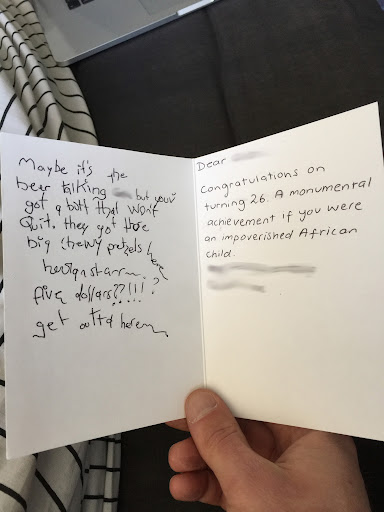 Maybe it's the
beer talking but you've
got a butt that won't
quit. they got those
big chewy pretzels here
five dollars??!!!?
get outta here
Dear
Congratulations on
turning 26. A monumental
achievement if you were
an impoverished African
child.